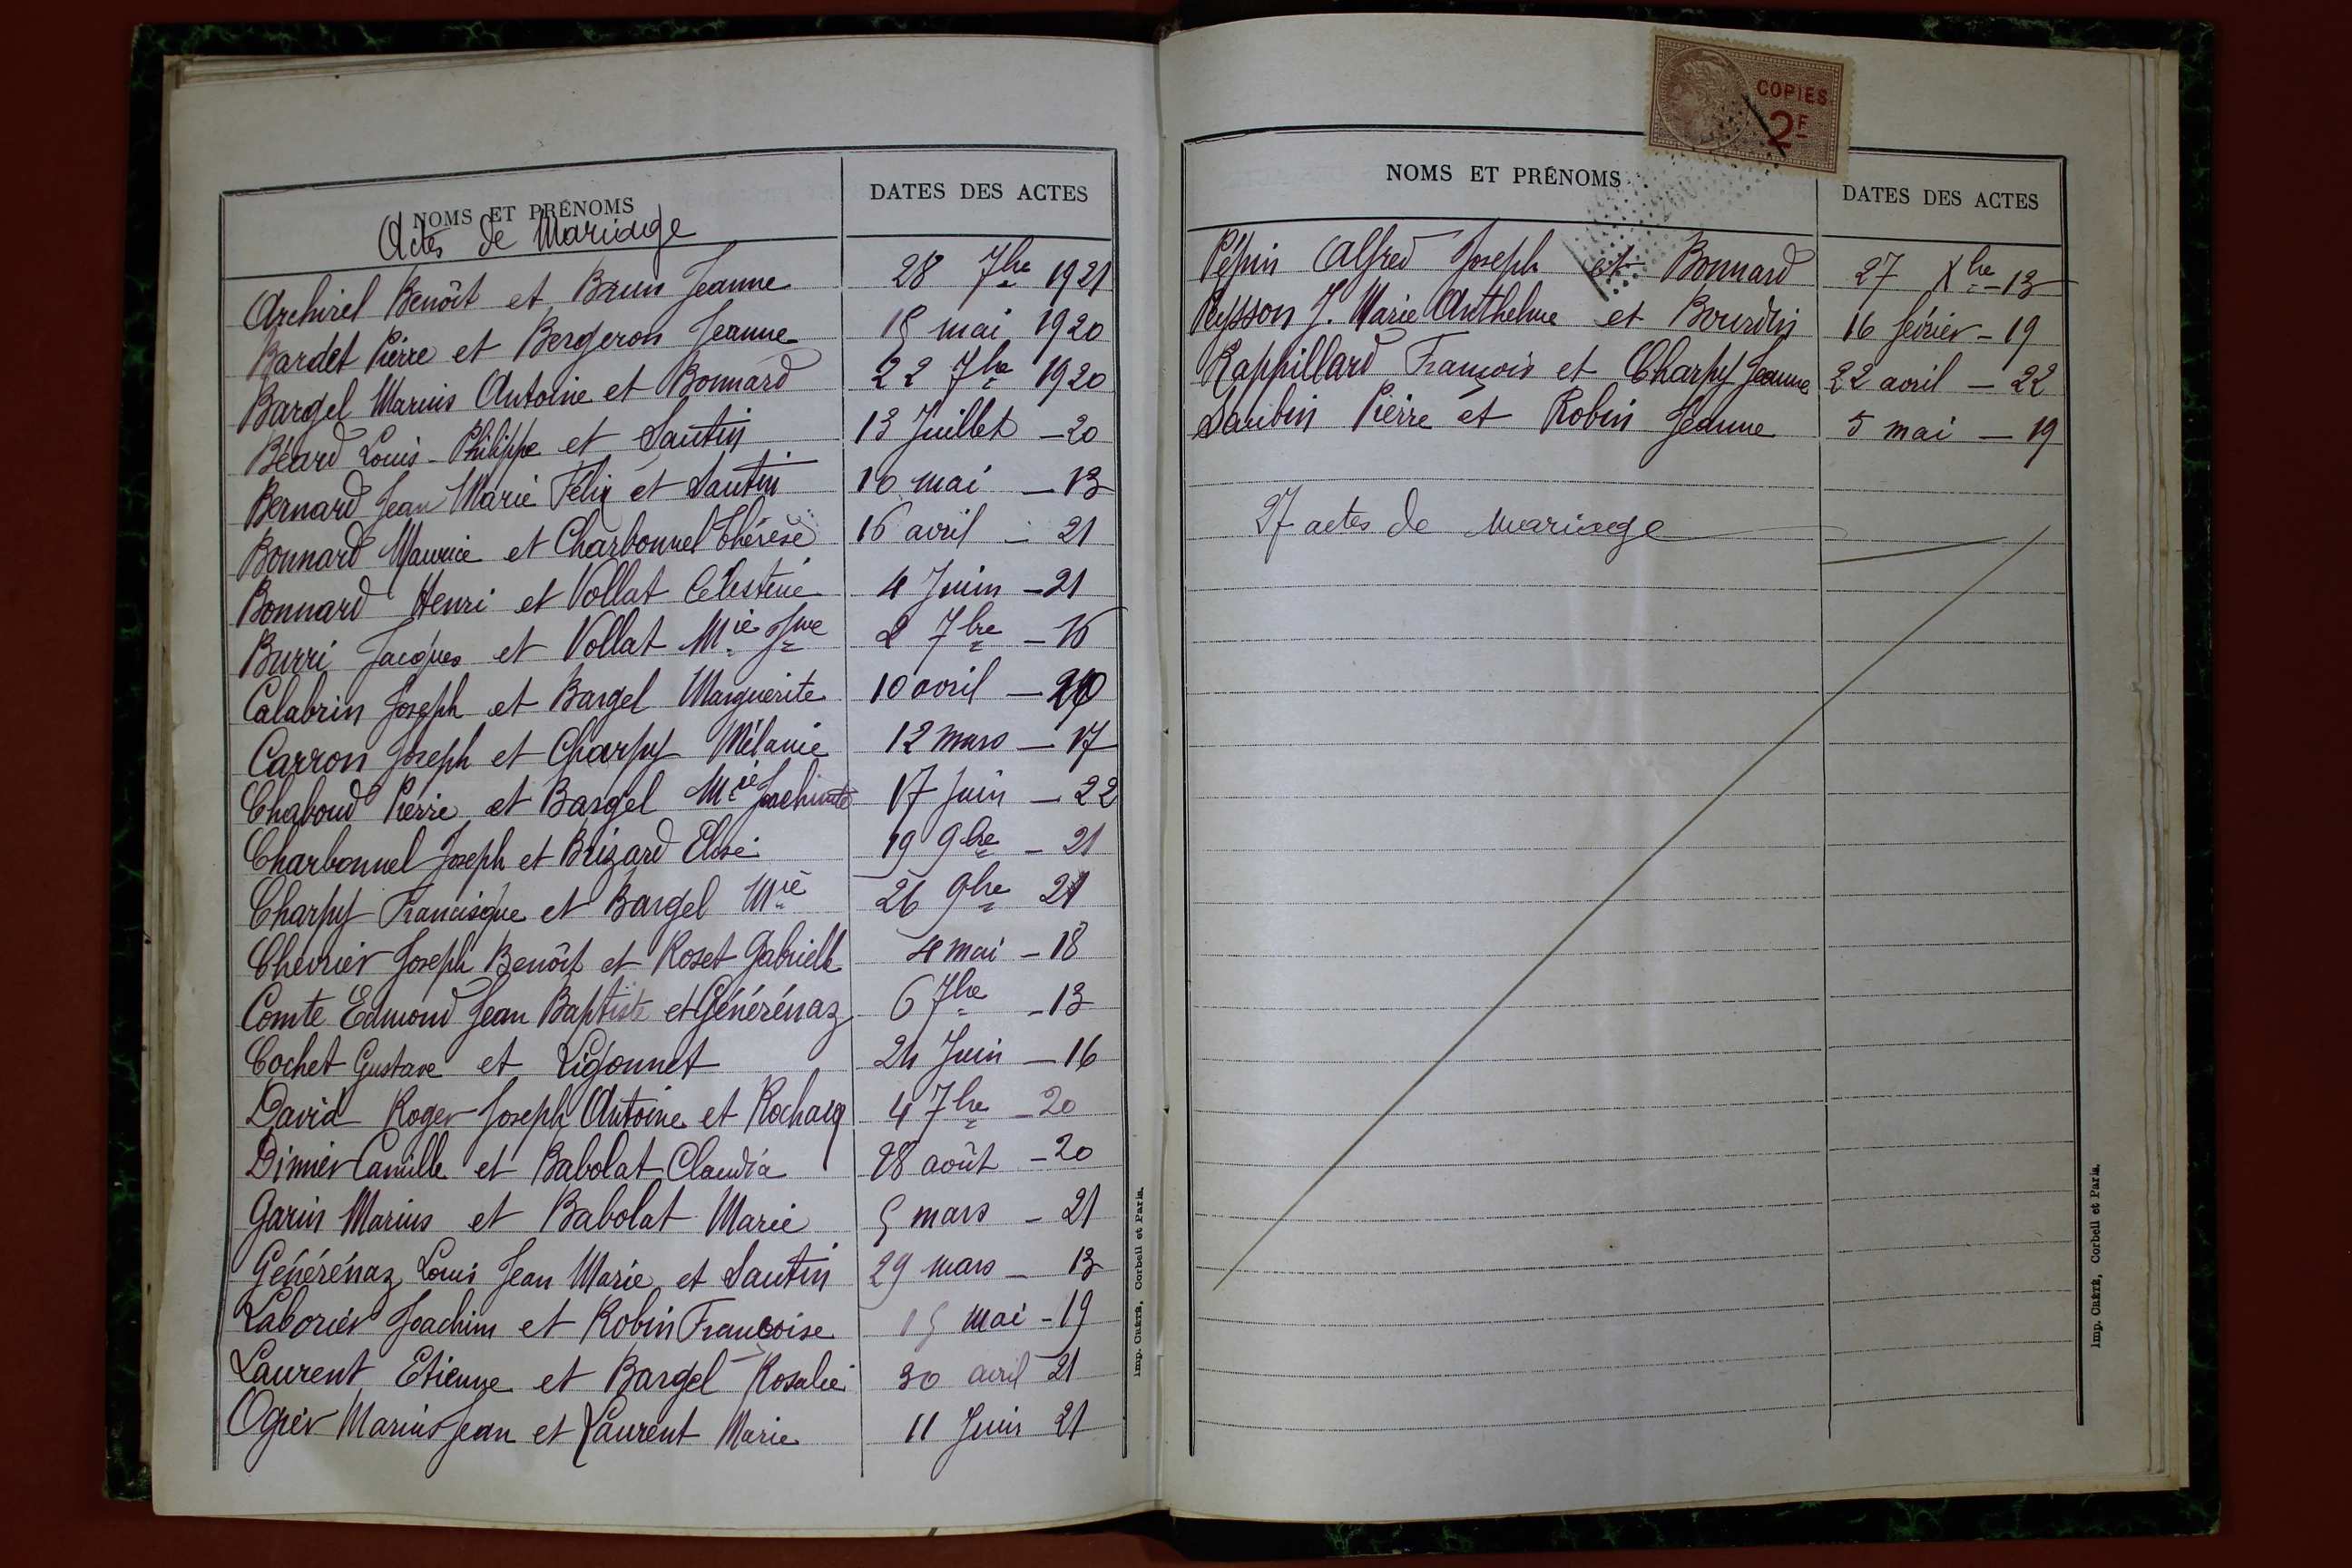 NOMS ET PRÉNOMS
DATES DES ACTES
Actes de Mariage
Archirel Benôit et Brun Jeanne 28 7bre 1921
Bardet Pierre et Bergeron Jeanne 15 mai 1920
Bargel Marius Antoine et Bonnard 22 7bre 1920
Béard Louis-Philippe et Sautin 13 Juillet - 20
Bernard Jean Marie Félix et Sautin 10 mai - 13
Bonnard Maurice et Charbonnel Thérèse 16 avril - 21
Bonnard Henri et Vollat Célestine 4 Juin - 21
Burri Jacques et Vollat Mie Jne 2 7bre - 16
Calabrin Joseph et Bargel Marguerite 10 avril - 20
Carron Joseph et Charpy Mélanie 12 mars - 17
Chaboud Pierre et Bargel Mie 17 Juin - 22
Charbonnel Joseph et Brizard Elise 19 9bre - 21
Charpy Francisque et Bargel Mie 26 9bre 21
Chevrier Joseph Benôit et Roset Gabrielle 4 mai - 18
Comte Edmond Jean Baptiste et Générénaz 6 7bre - 13
Cochet Gustave et Ligonnet 24 Juin - 16
David Roger Joseph Antoine et 4 7bre - 20
Dimier Camille et Babolat Claudia 28 août - 20
Garin Marius et Babolat Marie 5 mars - 21
Générénaz Louis Jean Marie et Sautin 29 mars - 13
Laborier Joachim et Robin Françoise 15 mai - 19
Laurent Etienne et Bargel Rosalie 30 avril 21
Ogier Marius Jean et Laurent Marie 11 Juin 21
Imp. CRÉTÉ, Corbeil et Paris.
COPIES
2F
NOMS ET PRÉNOMS
DATES DES ACTES
Pépin Alfred Joseph et Bonnard 27 Xbre - 13
Peysson J. Marie Anthelme et Bourdin 16 février - 19
Rappillard François et Charpy Jeanne 22 avril - 22
Saubin Pierre et Robin Jeanne 5 mai - 19
27 actes de mariage
Imp. CRÉTÉ, Corbeil et Paris.